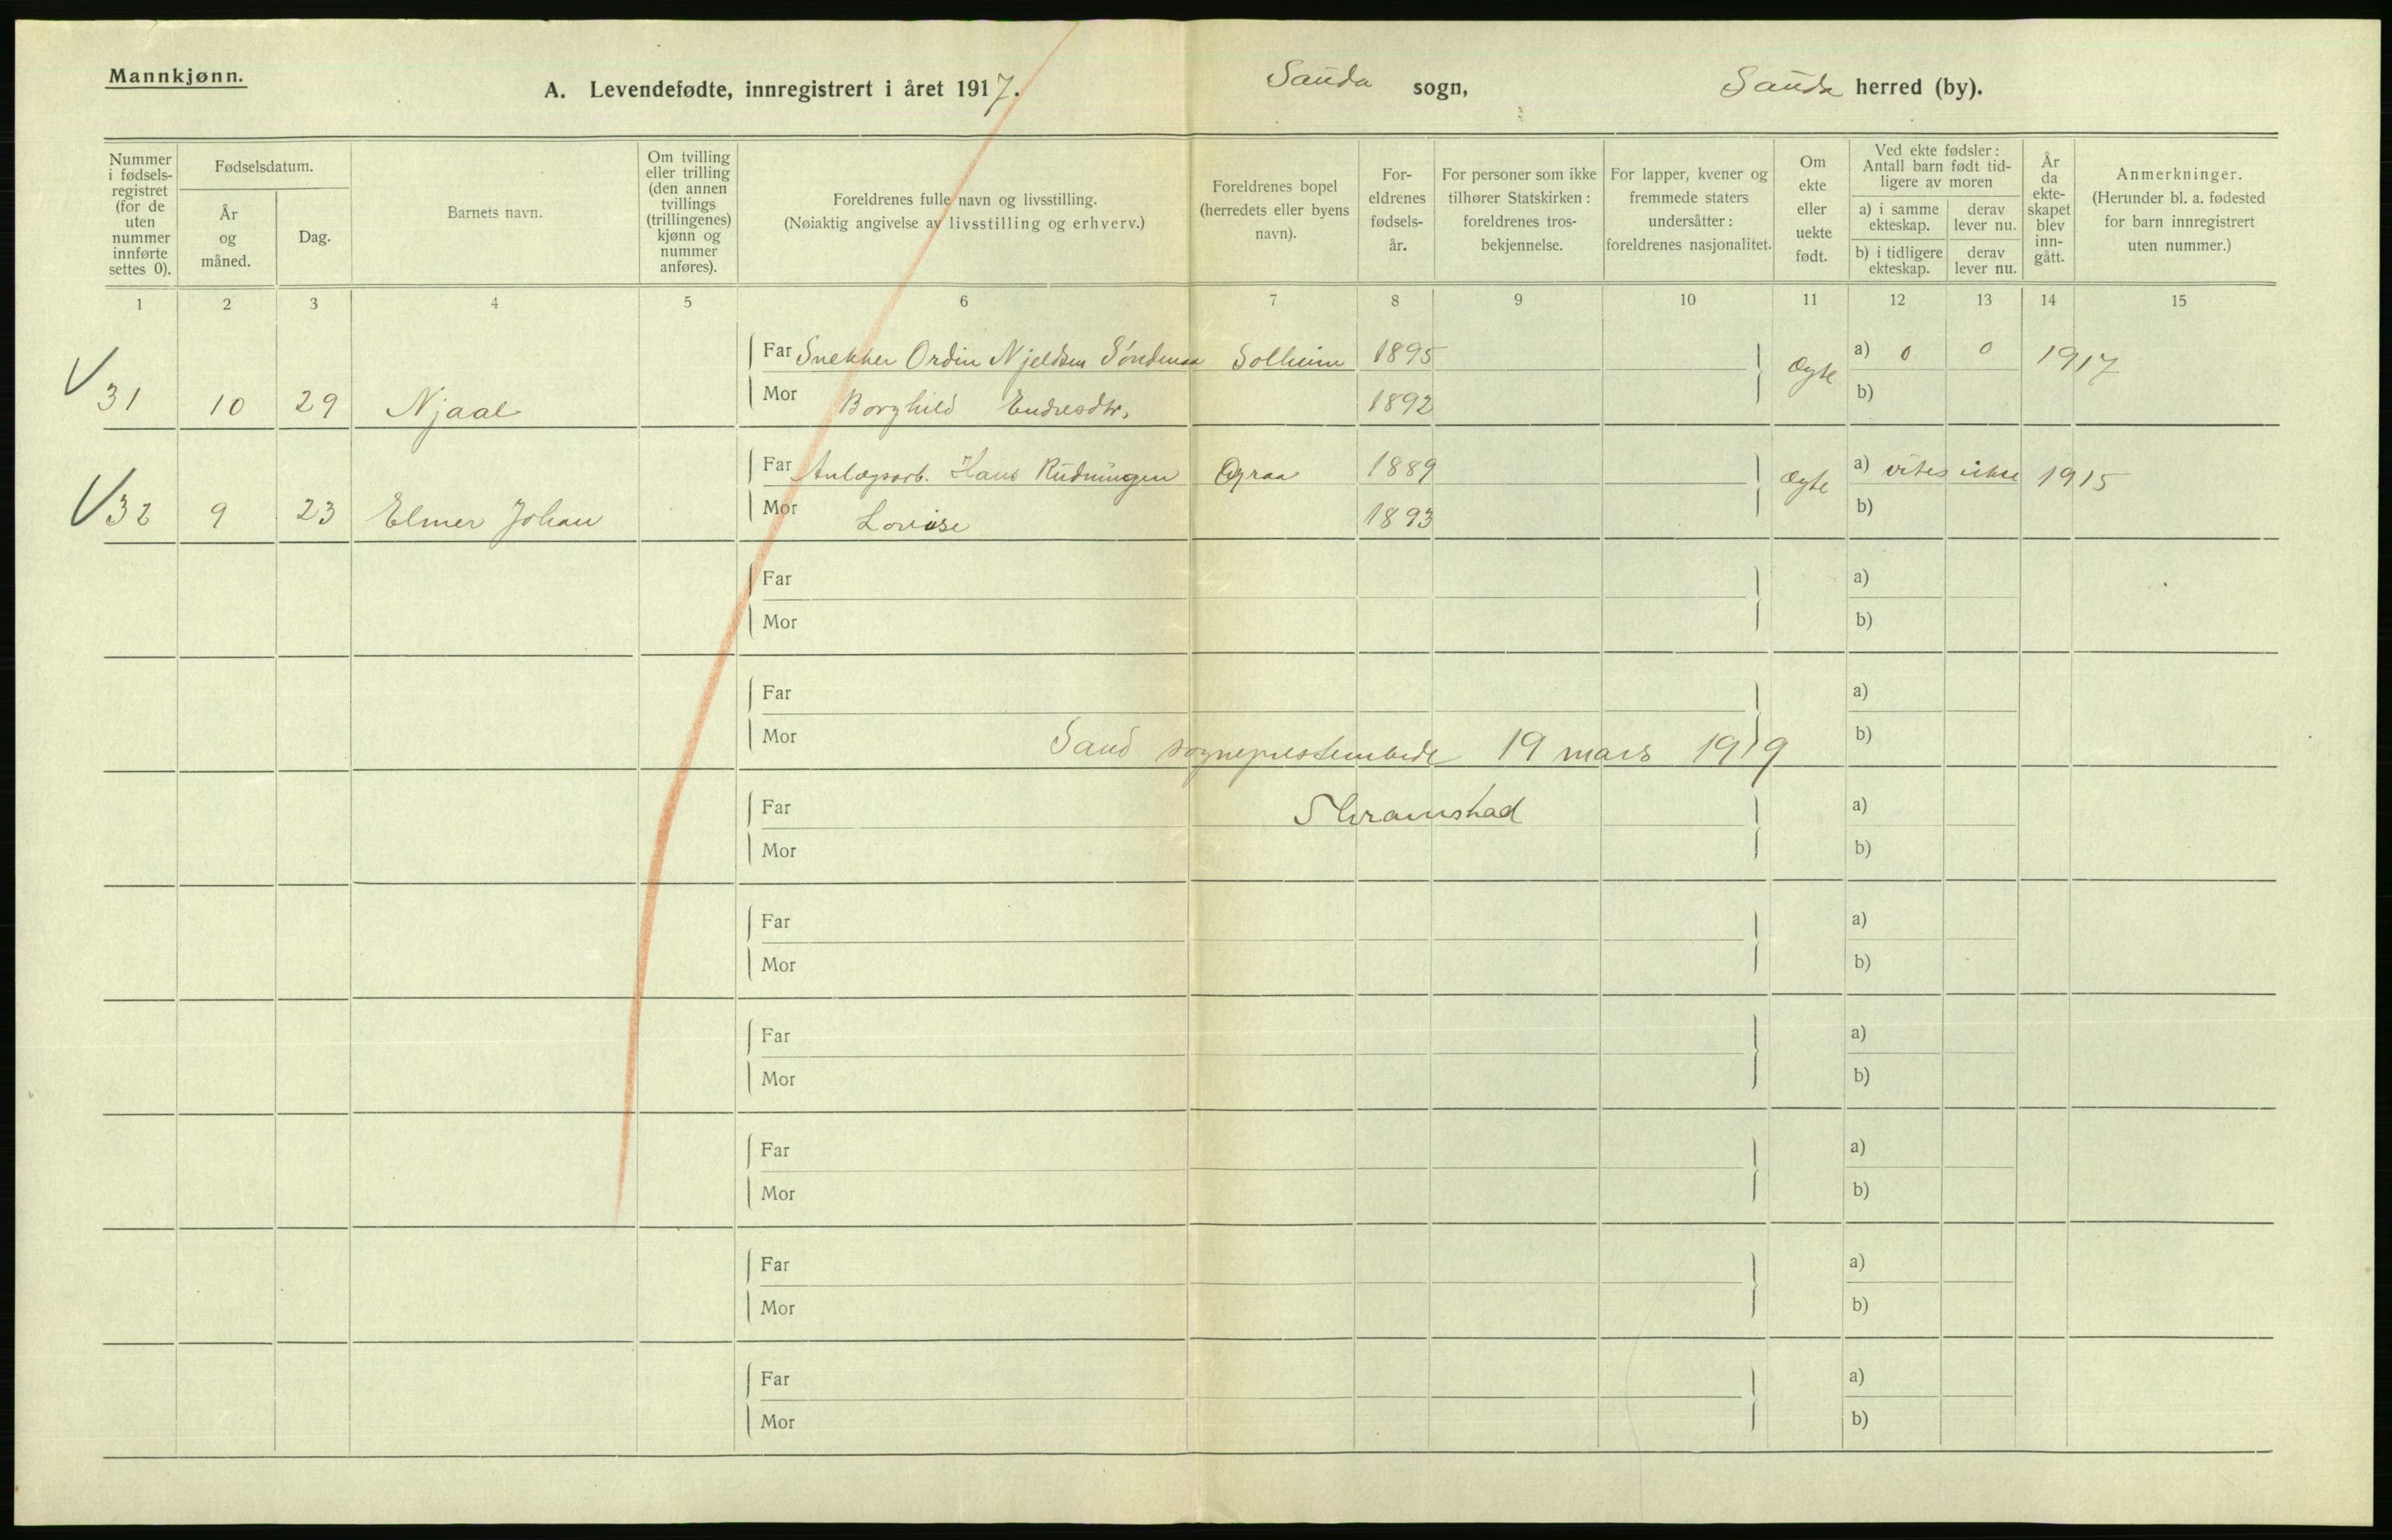 Mannkjønn.
A. Levendefødte, innregistrert i året 1917. Sauda sogn, Sauda herred (by).
Nummer i fødsels-registret (for de uten nummer innførte settes 0).
Fødselsdatum.
År og måned.
Dag.
Barnets navn.
Om tvilling eller trilling (den annen tvillings (trillingenes) kjønn og nummer anføres).
Foreldrenes fulle navn og livsstilling.
(Nøiaktig angivelse av livsstilling og erhverv.)
Foreldrenes bopel (herredets eller byens navn).
For-eldrenes fødsels-år.
For personer som ikke tilhører Statskirken: foreldrenes tros-bekjennelse.
For lapper, kvener og fremmede staters undersåtter: foreldrenes nasjonalitet.
Om ekte eller uekte født.
Ved ekte fødsler: Antall barn født tid-ligere av moren
a) i samme ekteskap.
derav lever nu.
b) i tidligere ekteskap.
derav lever nu.
År da ekte-skapet blev inn-gått.
Anmerkninger.
(Herunder bl. a. fødested for barn innregistrert uten nummer.)
1 2 3 4 5 6 7 8 9 10 11 12 13 14 15
Far Snekker Ordin Njeldsen Søndenaa Solheim 1895 a) 0 0 1917
31 10 29 Njaal Mor Borghild Endresdtr. 1892 Ægte b)
Far Anlægsarb. Hans Rudningen 1889 a) vites ikke 1915
32 9 23 Elmer Johan Mor Lovise 1893 Ægte b)
Far a)
Mor b)
Far a)
Mor b)
Sand sogneprestembede 19 mars 1919
Far a)
Skramstad
Mor b)
Far a)
Mor b)
Far a)
Mor b)
Far a)
Mor b)
Far a)
Mor b)
Far a)
Mor b)